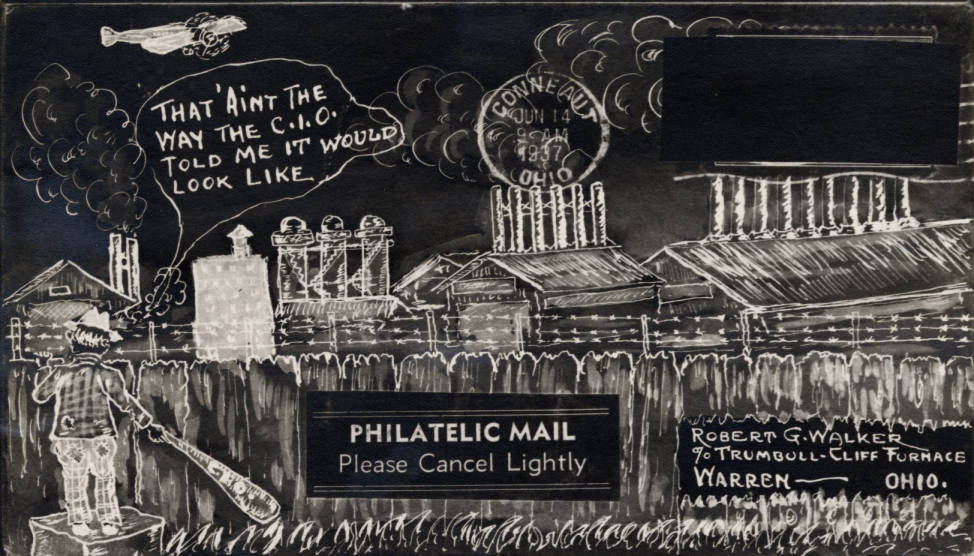 THAT 'AINT THE
WAY THE C.I.O.
TOLD ME IT WOULD
LOOK LIKE
CONNEAUT
JUN 14
9 AM
1937
OHIO
PHILATELIC MAIL
Please Cancel Lightly
ROBERT G. WALKER
% TRUMBULL-CLIFF FURNACE
WARREN — OHIO.